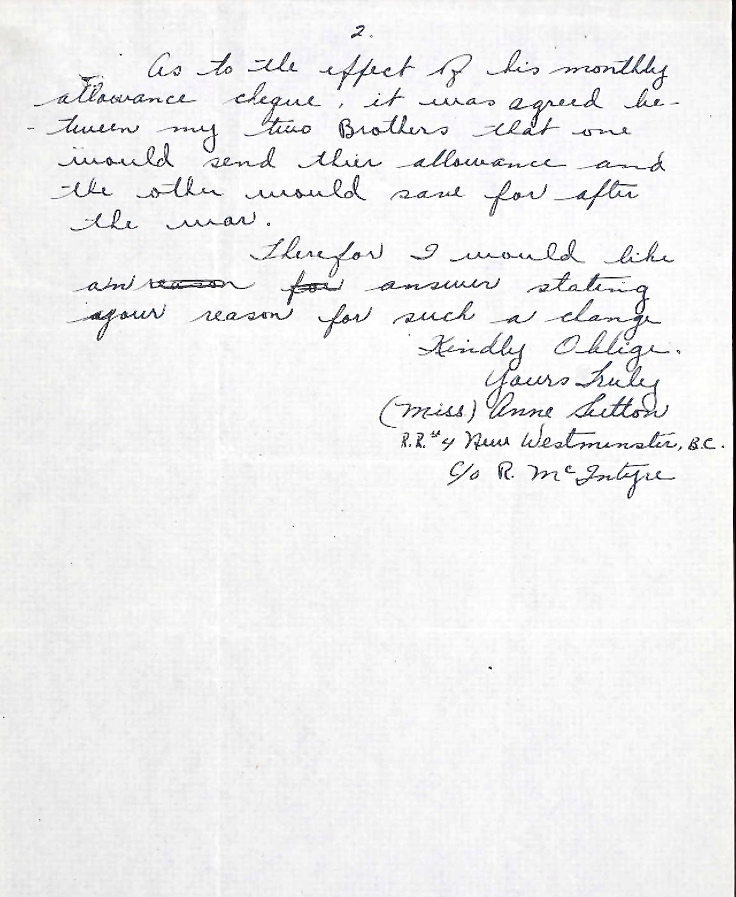 2.
As to the effect of his monthly
allowance cheque, it was agreed be-
- tween my two Brothers that one
would send thier allowance and
the other would save for after
the war.
Therefor I would like
an reason for answer stating
your reason for such a change
Kindly Oblige.
Yours Truly
(Miss) Anne Sutton
R.R.#4 New Westminster, B.C.
c/o R. McIntyre